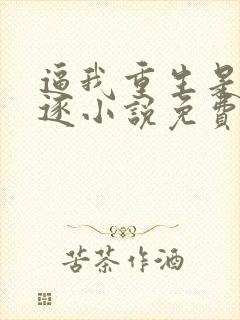 逼我重生是
逐小說免費
苦茶作酒